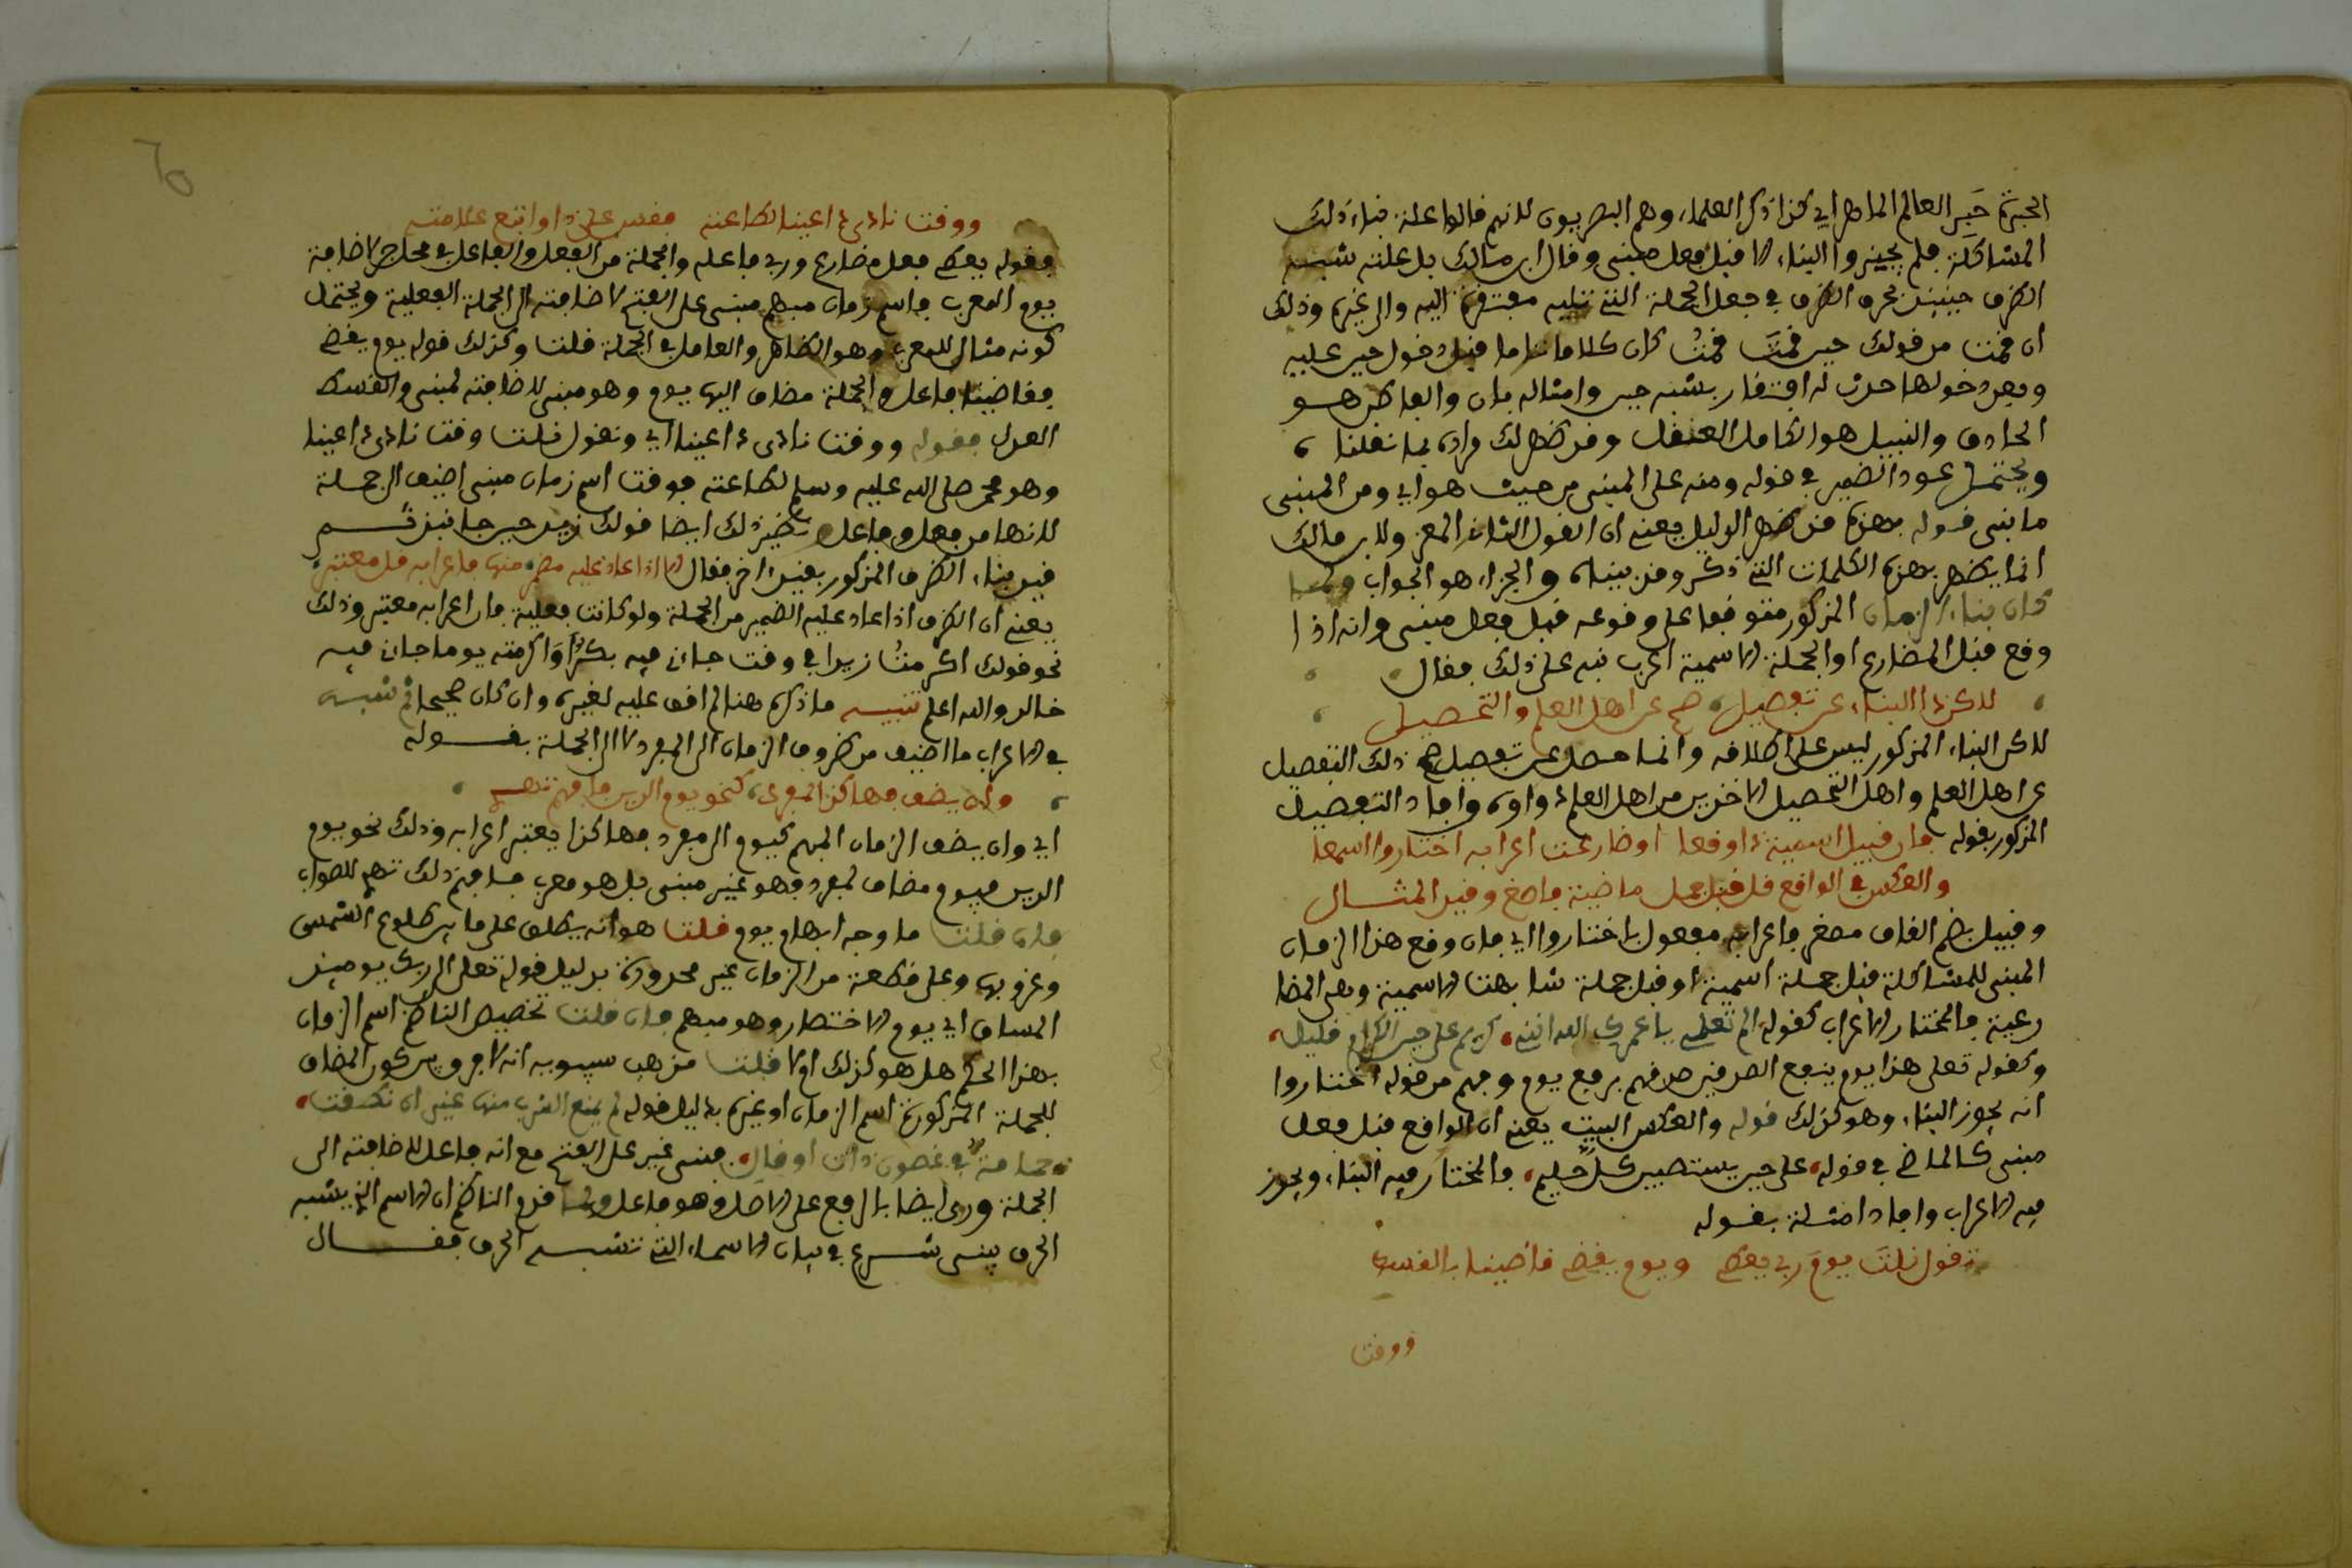 الحبر ثم حَبر العالم الماهر اي كذا ذكر العلماء وهم البصريون لانهم قالوا علة بناء ذلك
المشاكلة فلم يجيزوا البناء الا قبل فعل مبني وقال ابن مالك بل علته شبه
الظرف حينئذ بحرف الشرط في جعل الجملة التي تليه مفتقرة اليه والى غيره وذلك
ان قمت من قولك حين قمتَ قمتُ كان كلاما تاما قبل دخول حين عليه
وبعد دخولها حدث له افتقار بشبه حين وامثاله بان والفاضل هو
الحاذق والنبيل هو الكامل العقل وقد ظهر لك مراده بما نقلنا
ويحتمل عود الضمير في قوله ومنه على المبني من حيث هو اي ومن المبني
ما بني قوله بهذه قد ظهر الدليل يعني ان القول الثاني المعزو لابن مالك
انما يظهر بهذه الكلمات التي ذكر وقد بيناه والجزاء هو الجواب ولما
كان بناء الزمان المذكور متوقفا على وقوعه قبل فعل مبني وانه اذا
وقع قبل المضارع او الجملة الاسمية اعرب نبه على ذلك فقال
لاكن ذا البناء عن تفصيل صح عن اهل العلم والتحصيل
لاكن البناء المذكور ليس على اطلاقه وانما حصل عن تفصيل صح ذلك التفصيل
عن اهل العلم واهل التحصيل الاخذين من اهل العلم ذاوه وافاد التفصيل
المذكور بقوله فان قبيل اسمية ذا وقعا او ضارعت اعرابه اختاروا اسمعا
والعكس في الواقع قل قبل جمل ماضية فاصغ وقيد المثال
وقبيل بضم القاف مصغر واعرابه مفعول باختاروا اي فان وقع هذا الزمان
المبني للمشاكلة قبل جملة اسمية او قبل جملة شابهت الاسمية وهي المضا
رعية فالمختار الاعراب كقوله الم تعلمي يا عمرك الله انني كريم على حين الكرام قليل
وكقوله تعلى هذا يوم ينفع الصدقين صدقهم برفع يوم وفهم من قوله اختاروا
انه يجوز البناء وهو كذلك قوله والعكس البيت يعني ان الواقع قبل فعل
مبني كالماضي في قوله على حين يستصبين كل حليم فالمختار فيه البناء ويجوز
فيه الاعراب وافاد امثلة بقوله
تقول نلتَ يومَ ربي يعطي ويوم يقضي قاضينا بالقسط
ووقت
ووقت نادى ذا عينا لطاعته فقس على ذا واتبع علامته
فقوله يعطي فعل مضارع وربي فاعله والجملة من الفعل والفاعل في محل جر لاضافة
يوم المعرب فاسم زمان مبهم مبني على الفتح لاضافته الى الجملة الفعلية ويحتمل
كونه مثال للمعرب وهو الظاهر والعامل في الجملة قلت وكذلك قوله يوم يقضي
فقاضينا فاعل والجملة مضاف اليها يوم وهو مبني لاضافته لمبني والقسط
العدل فقوله ووقت نادى ذا عينا اي وتقول قلت وقت نادى ذا عينا
وهو محمد صلى الله عليه وسلم لطاعته فوقت اسم زمان مبني اضيف الى جملة
لانها من فعل وفاعل ونظير ذلك ايضا قولك زيد حين جا نبذ ثم
قيد بناء الظرف المذكور بقيد اخر فقال لا اذا عاد عليه مضمر منها فاعرابه قل معتبر
يعني ان الظرف اذا عاد عليه الضمير من الجملة ولو كانت فعلية فان اعرابه معتبر وذلك
نحو قولك اكرمتُ زيدا في وقت جاءني فيه بكرٌ او اكرمته يوما جاءني فيه
خالد والله اعلم تنبيه ما ذكره هنا لم اقف عليه لغيره وان كان صحيحا ثم شبه
في الاعراب ما اضيف من ظروف الزمان الى المفرد لا الى الجملة بقوله
وان يضف فهاكذا لمفرد كنحو يوم الدين فافهم تهم
اي وان يضف الزمان المبهم كيوم الى مفرد فهاكذا يعتبر اعرابه وذلك نحو يوم
الدين فيوم مضاف لمفرد فهو غير مبني بل هو معرب فافهم ذلك تهم للصواب
فان قلت ما وجه ابهام يوم قلت هو انه يطلق على ما بين طلوع الشمس
وغروبها وعلى قطعة من الزمان غير محدودة بدليل قوله تعلى الى ربك يومئذ
المساق اي يوم الاحتضار وهو مبهم فان قلت تخصيص الناظم اسم الزمان
بهذا الحكم هل هو كذلك او لا قلت مذهب سيبويه انه لا فرق بين كون المضاف
للجملة المذكورة اسم الزمان او غيره بدليل قوله لم يمنع الشرب منها غير ان نطقت
حمامةٌ في غصون ذات اوقال فبنى غير على الفتح مع انه فاعل لاضافته الى
الجملة وروي ايضا بالرفع على الاصل وهو فاعل ولما قدم الناظم ان الاسم الذي يشبه
الحرف يبنى شرع في بيان الاسماء التي تشبه الحرف فقال